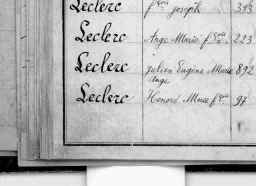 Leclerc fois Joseph 393
Leclerc Ange Marie fois 223
Leclerc Julien Eugène Marie 892
Ange
Leclerc Honoré Marie fois 97